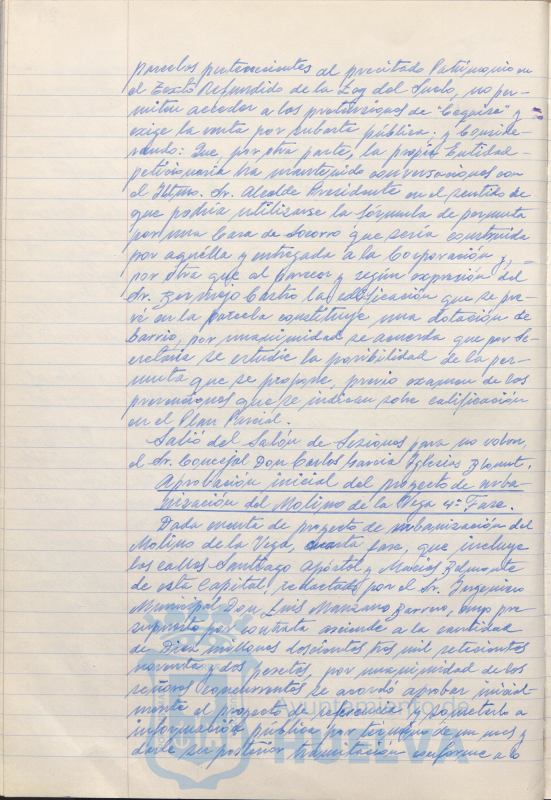 parcelas pertenecientes al precitado Patrimonio en
el Texto Refundido de la Ley del Suelo, no per-
miten acceder a las pretensiones de "Cequisa" y
exige la venta por subasta pública: y Conside-
rando: Que, por otra parte, la propia Entidad
peticionaria ha mantenido conversaciones con
el Iltmo. Sr. Alcalde Presidente en el sentido de
que podría utilizarse la fórmula de permuta
por una Casa de Socorro que sería construida
por aquélla y entregada a la Corporación y,
por otra que al parecer y según expresión del
Sr. Bermejo Castro la edificación que se pre-
vé en la parcela constituye una dotación de
barrio, por unanimidad se acuerda que por Se-
cretaría se estudie la posibilidad de la per-
muta que se propone, previo examen de las
prevenciones que se indican sobre calificación
en el Plan Parcial.
Salió del Salón de Sesiones para no volver,
el Sr. Concejal Don Carlos García Iglesias
Aprobación inicial del proyecto de urba-
nización del Molino de la Vega 4ª Fase.
Dada cuenta de proyecto de urbanización del
Molino de la Vega, cuarta fase, que incluye
las calles Santiago Apóstol y Macías Belmonte
de esta Capital, redactado por el Sr. Ingeniero
Municipal Don Luis Manzano Barrero, cuyo pre
supuesto por contrata asciende a la cantidad
de Diez millones doscientas tres mil setecientas
noventa y dos pesetas, por unanimidad de los
señores Concurrentes se acordó aprobar inicial-
mente el proyecto de referencia y someterlo a
información pública por término de un mes y
darle su posterior tramitación conforme a lo
Ayuntamiento de
HUELVA